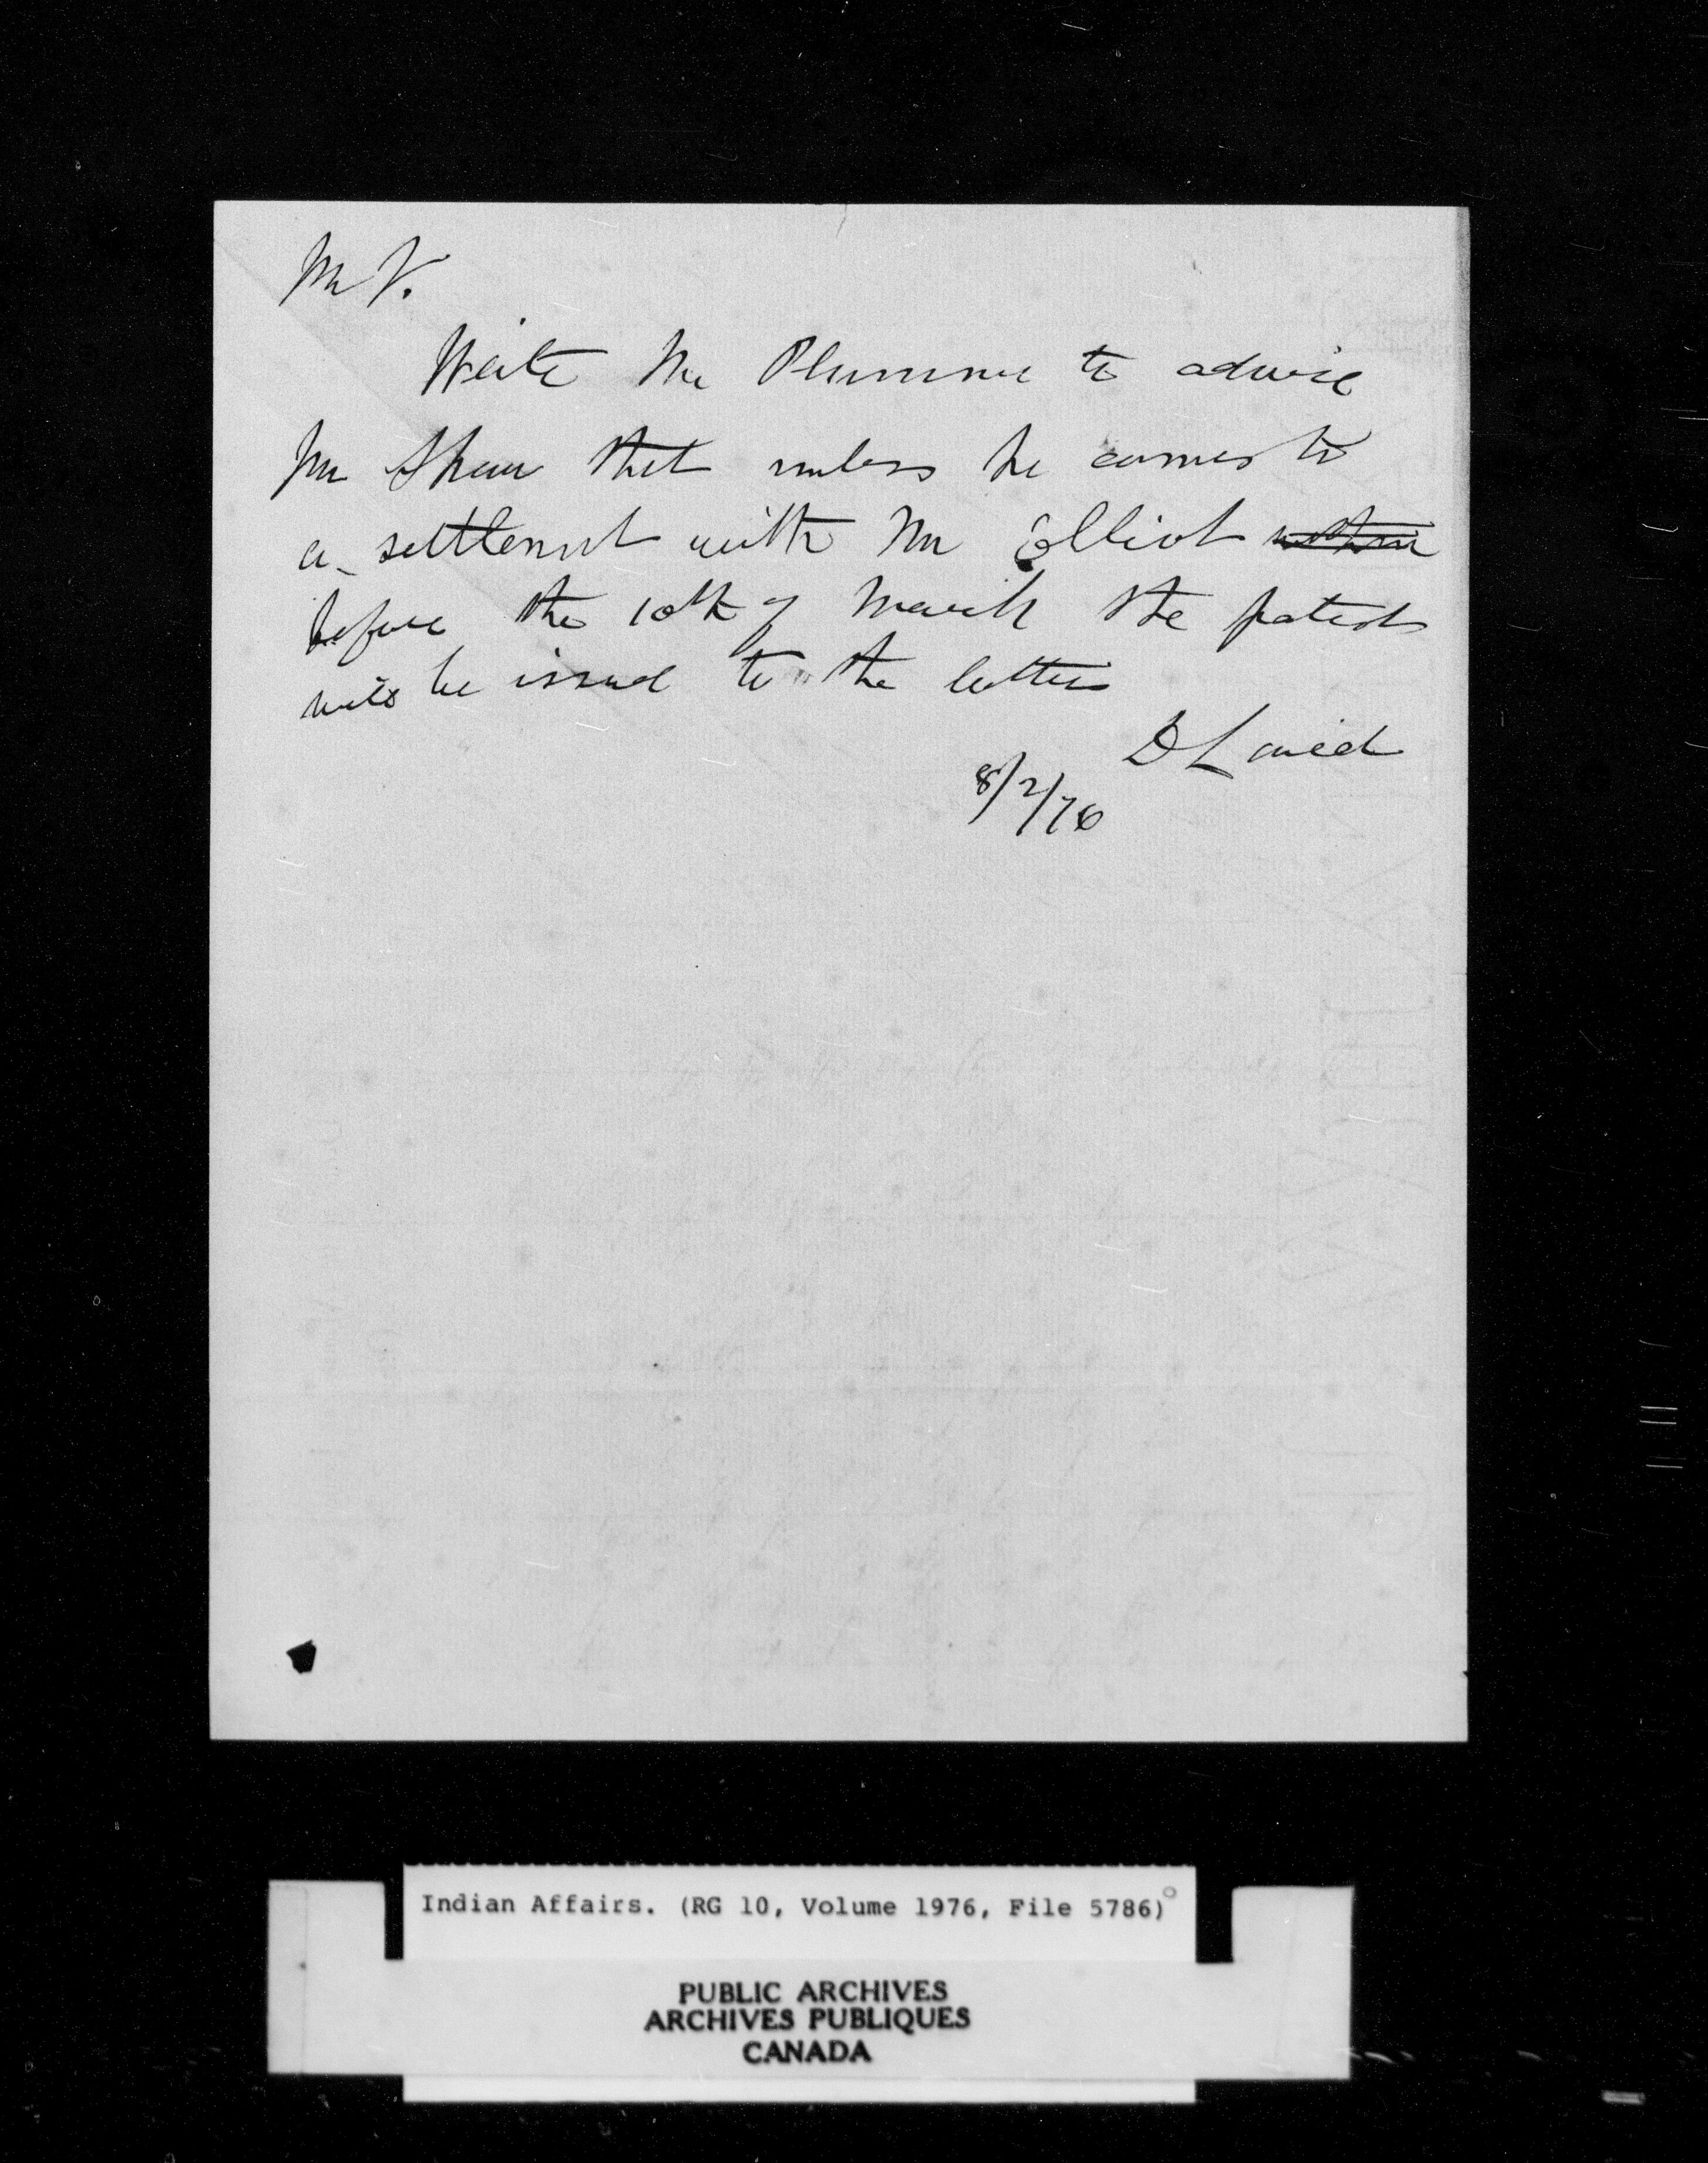 Mr V.
Write Mr Plummer to advise
Mr Shaw that unless he comes to
a settlement with Mr Elliot within
before the 10th of March the patent
will be issued to the latter
D Laird
8/2/76
Indian Affairs. (RG 10, Volume 1976, File 5786)
PUBLIC ARCHIVES
ARCHIVES PUBLIQUES
CANADA